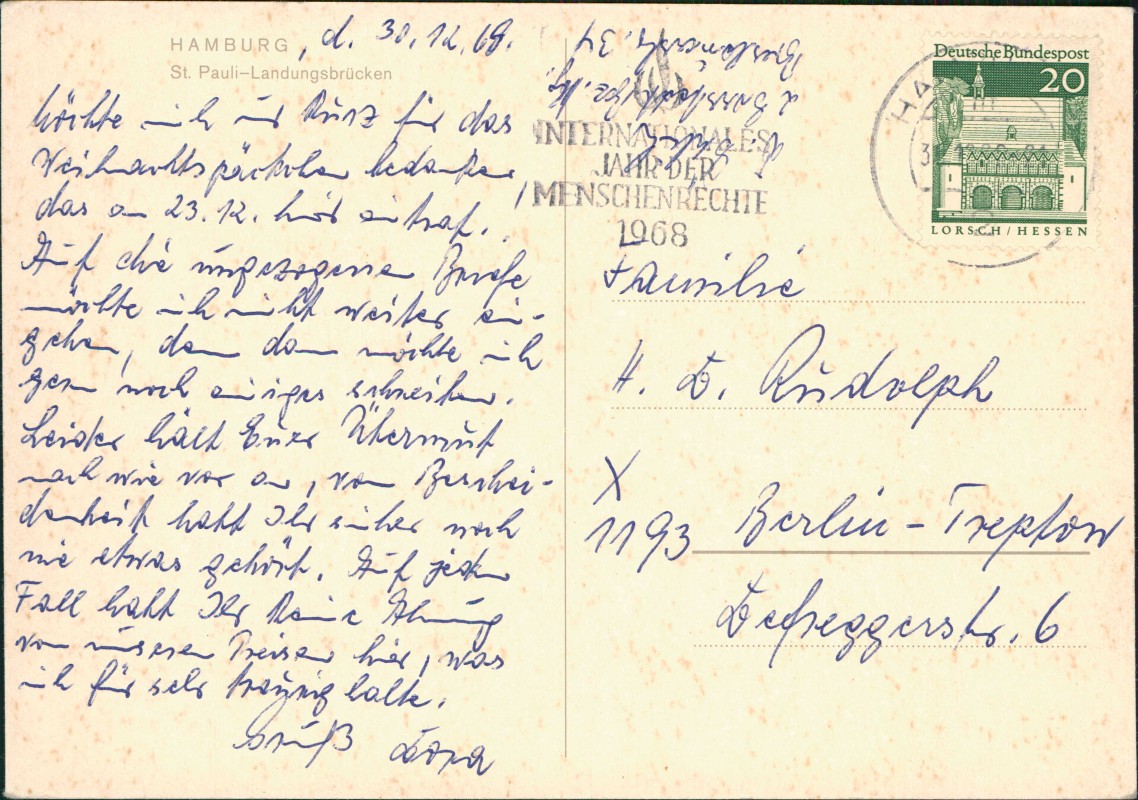 HAMBURG, d. 30.12.68.
St. Pauli-Landungsbrücken
möchte mich nur kurz für das
Weihnachtspäckchen bedanken,
das am 23.12. hier eintraf.
Auf die ungezogenen Briefe
möchte ich nicht weiter ein-
gehen, denn dann möchte ich
gern noch einiges schreiben.
Leider hält Euer Übermut
nach wie vor an, von Beschei-
denheit habt Ihr sicher noch
nie etwas gehört. Auf jeden
Fall habt Ihr keine Ahnung
von unseren Preisen hier, was
ich für sehr traurig halte.
Gruß
INTERNATIONALES
JAHR DER
MENSCHENRECHTE
1968
Deutsche Bundespost
20
LORSCH/HESSEN
Familie
H. D. Rudolph
X
1193 Berlin-Treptow
Defreggerstr. 6